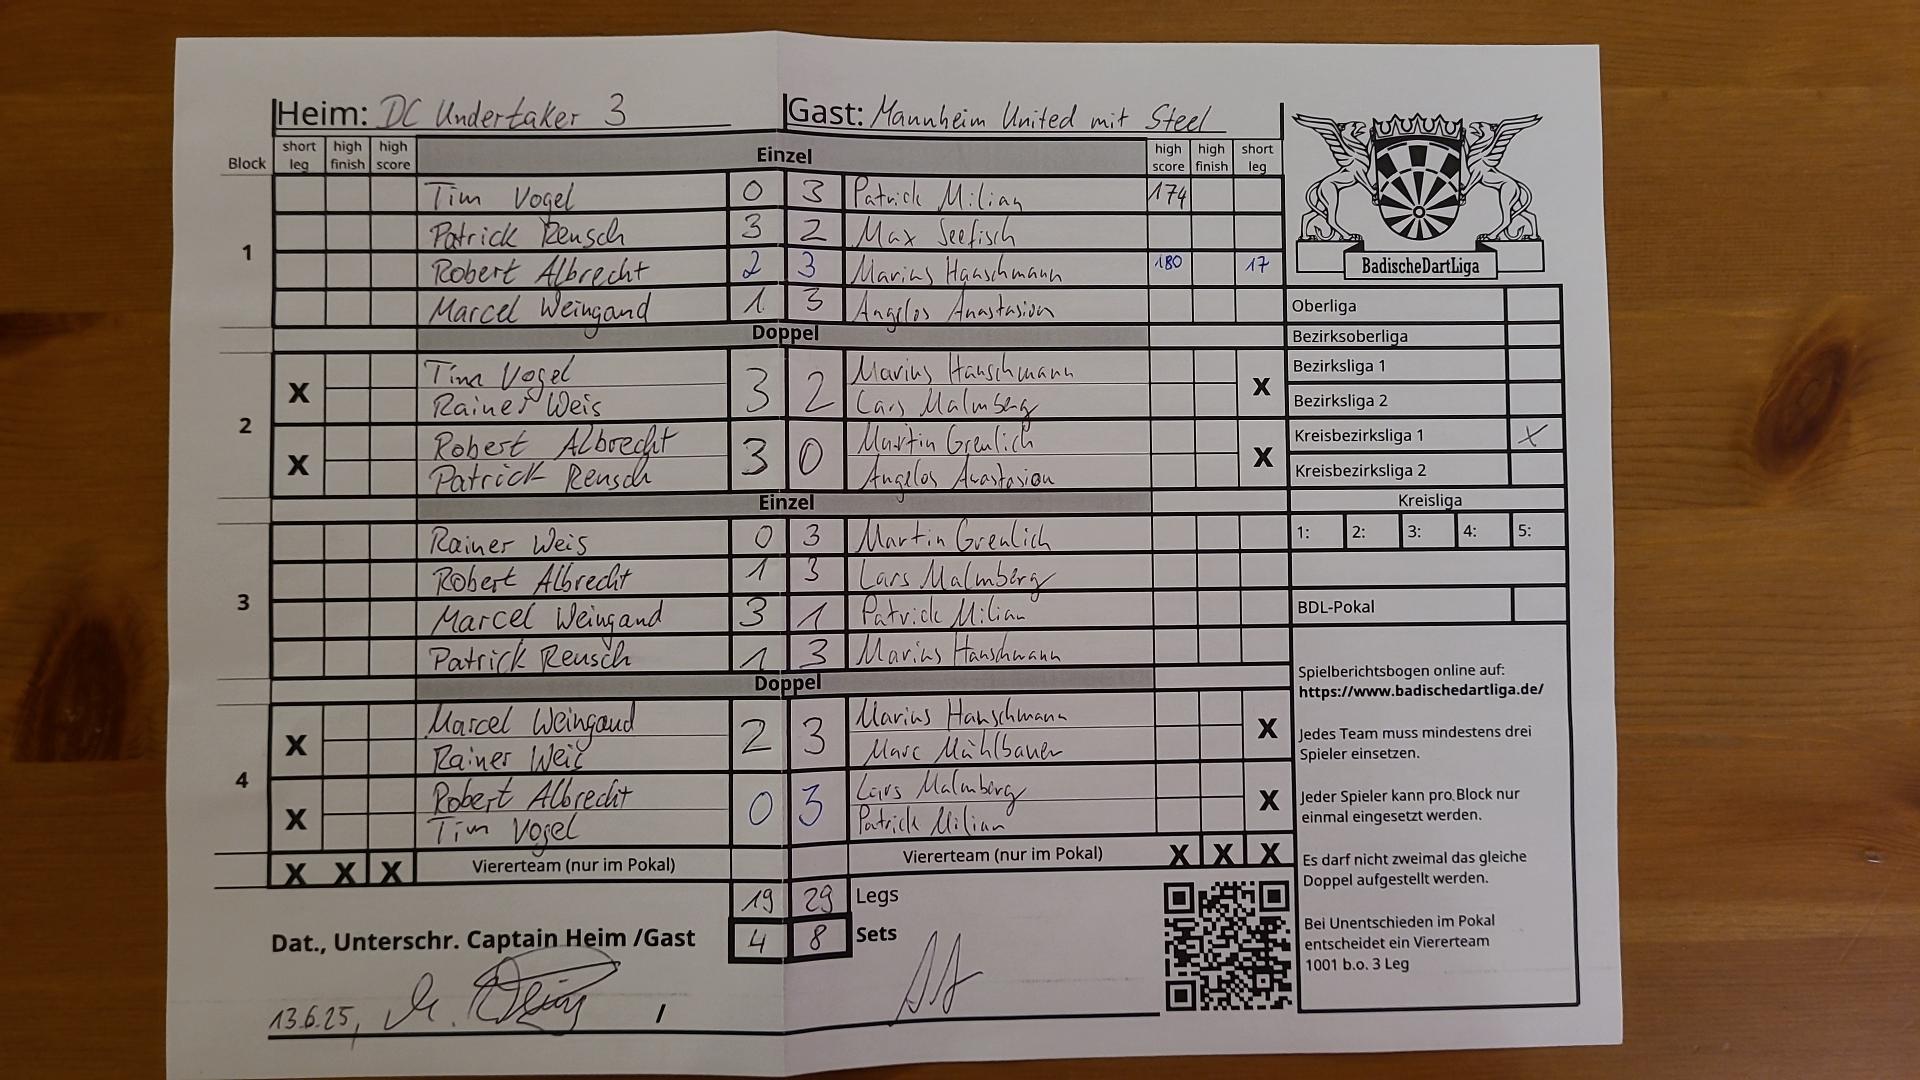 Heim: DC Undertaker 3 Gast: Mannheim United mit Steel
Block short leg high finish high score Einzel high score high finish short leg
1
Tim Vogel 0 3 Patrick Milian 174
Patrick Reusch 3 2 Max Seefisch
Robert Albrecht 2 3 Marius Hanschmann 180 17
Marcel Weingand 1 3 Angelos Anastasiou
Doppel
2
X Tim Vogel 3 2 Marius Hanschmann X
Rainer Weis Lars Malmberg
X Robert Albrecht 3 0 Martin Greulich X
Patrick Reusch Angelos Anastasiou
Einzel
3
Rainer Weis 0 3 Martin Greulich
Robert Albrecht 1 3 Lars Malmberg
Marcel Weingand 3 1 Patrick Milian
Patrick Reusch 1 3 Marius Hanschmann
Doppel
4
X Marcel Weingand 2 3 Marius Hanschmann X
Rainer Weis Marc Mühlbauer
X Robert Albrecht 0 3 Lars Malmberg X
Tim Vogel Patrick Milian
X X X Viererteam (nur im Pokal) Viererteam (nur im Pokal) X X X
19 29 Legs
4 8 Sets
Dat., Unterschr. Captain Heim /Gast
13.6.25, /
BadischeDartLiga
Oberliga
Bezirksoberliga
Bezirksliga 1
Bezirksliga 2
Kreisbezirksliga 1 X
Kreisbezirksliga 2
Kreisliga
1: 2: 3: 4: 5:
BDL-Pokal
Spielberichtsbogen online auf:
https://www.badischedartliga.de/
Jedes Team muss mindestens drei
Spieler einsetzen.
Jeder Spieler kann pro Block nur
einmal eingesetzt werden.
Es darf nicht zweimal das gleiche
Doppel aufgestellt werden.
Bei Unentschieden im Pokal
entscheidet ein Viererteam
1001 b.o. 3 Leg